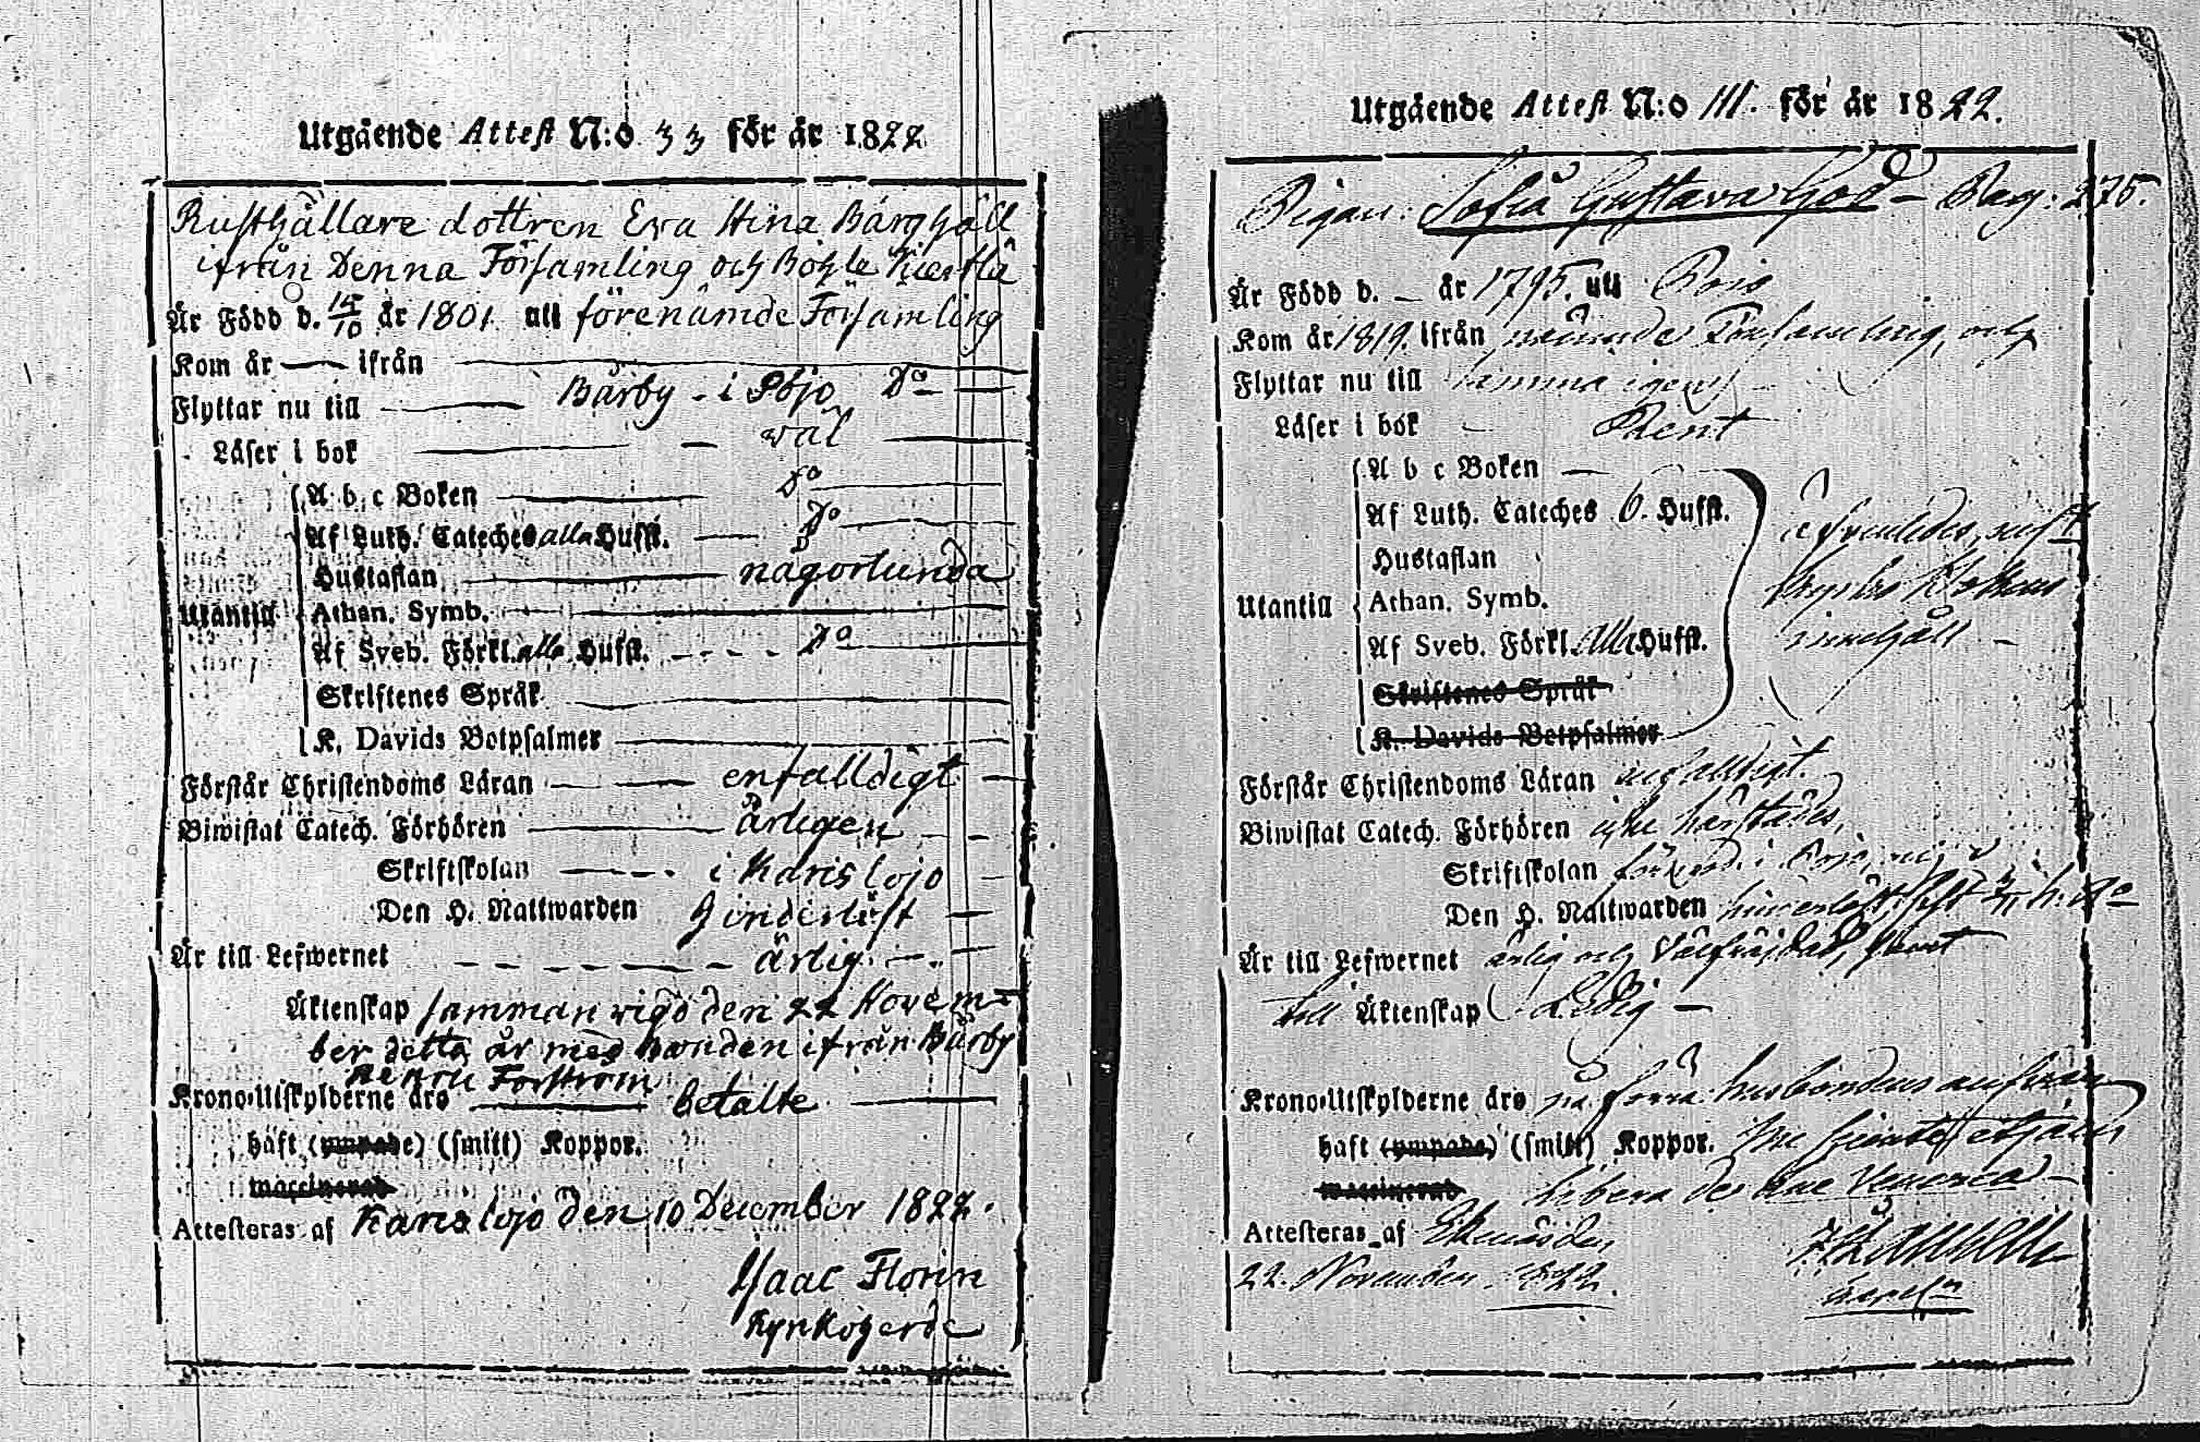 Utgående Attest N:o 33 för år 1822
Rusthållare dottren Eva Stina Bärghäll
ifrån Denna Församling och Böhle
Är Född d. 15/10 år 1801 uti förenämde Församling
Kom år — ifrån
Flyttar nu till Bärby - i Pojo Do
Läser i bok wäl
Utantill
A b c Boken Do
Af Luth. Cateches alla Hufst. Do
Hustaflan någorlunda
Athan. Symb.
Af Sveb. Förkl. alla Hufst. Do
Skriftenes Språk
K. Davids Botpsalmer
Förstår Christendoms Läran enfalldigt
Biwistat Catech. Förhören årligen
Skriftskolan i Karislojo
Den H. Nattwarden hinderlöst
Är till Lefwernet ärlig
Äktenskap samman vigd den 22 Novem-
ber detta år med ifrån Bärby
Forström
Krono-Utskylderne äro betalte
haft (ympade) (smitt) Koppor.
waccinerad
Attesteras af Karislojo den 10 December 1822.
Isaac Florin
Kyrkoherde
Utgående Attest N:o 111. för år 1822.
Pigan: Sofia Gustava - Pag: 275.
Är Född d. — år 1795. uti Pojo
Kom år 1819. ifrån nämnde Församling, och
Flyttar nu till samma igen
Läser i bok Rent
Utantill
A b c Boken
Af Luth. Cateches 6. Hufst.
Hustaflan
Athan. Symb.
Af Sveb. Förkl. alla Hufst.
Skriftenes Språk
K. Davids Botpsalmer
innehåll
Förstår Christendoms Läran enfalldigt.
Biwistat Catech. Förhören icke härstädes,
Skriftskolan i Pojo, och
Den H. Nattwarden hinderlöst, sist
Är till Lefwernet ärlig och Välfräjdad, samt
till Äktenskap Ledig —
Krono-Utskylderne äro på förra husbondens ansvar
haft (ympade) (smitt) Koppor.
waccinerad libera de lue Venerea —
Attesteras af Ekenäs den
22. November 1822.